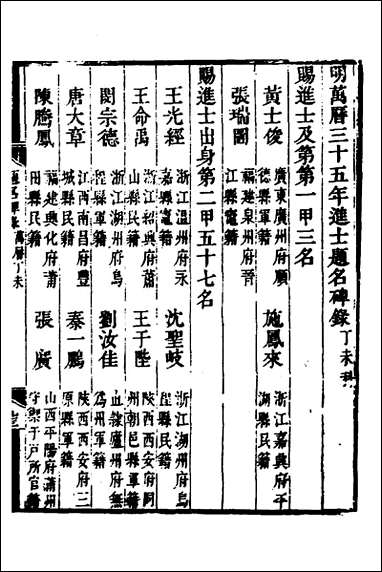 明萬曆三十五年進士題名碑錄 丁未科
賜進士及第第一甲三名
黃士俊 廣東廣州府順德縣軍籍 施鳳來 浙江嘉興府平湖縣民籍
張瑞圖 福建泉州府晉江縣竈籍
賜進士出身第二甲五十七名
王光經 浙江溫州府永嘉縣竈籍 沈聖岐 浙江湖州府烏程縣民籍
王命禹 浙江紹興府蕭山縣民籍 王于陛 陝西西安府同州朝邑縣軍籍
閔宗德 浙江湖州府烏程縣軍籍 劉汝佳 直隸廬州府無為州軍籍
唐大章 江西南昌府豐城縣民籍 秦一鵬 陝西西安府三原縣軍籍
陳騰鳳 福建興化府莆田縣民籍 張廣 山西平陽府蒲州守禦千戶所官籍
題名碑錄 萬曆丁未